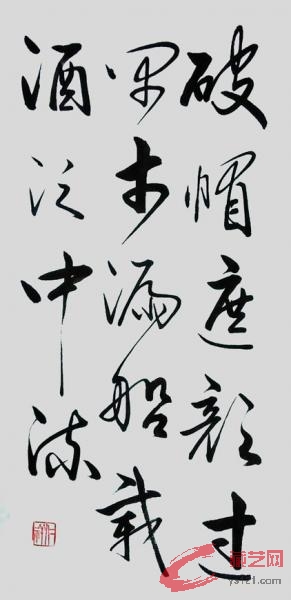 破帽遮颜过
闹市漏船载
酒泛中流
藏艺网
ys1z1.com